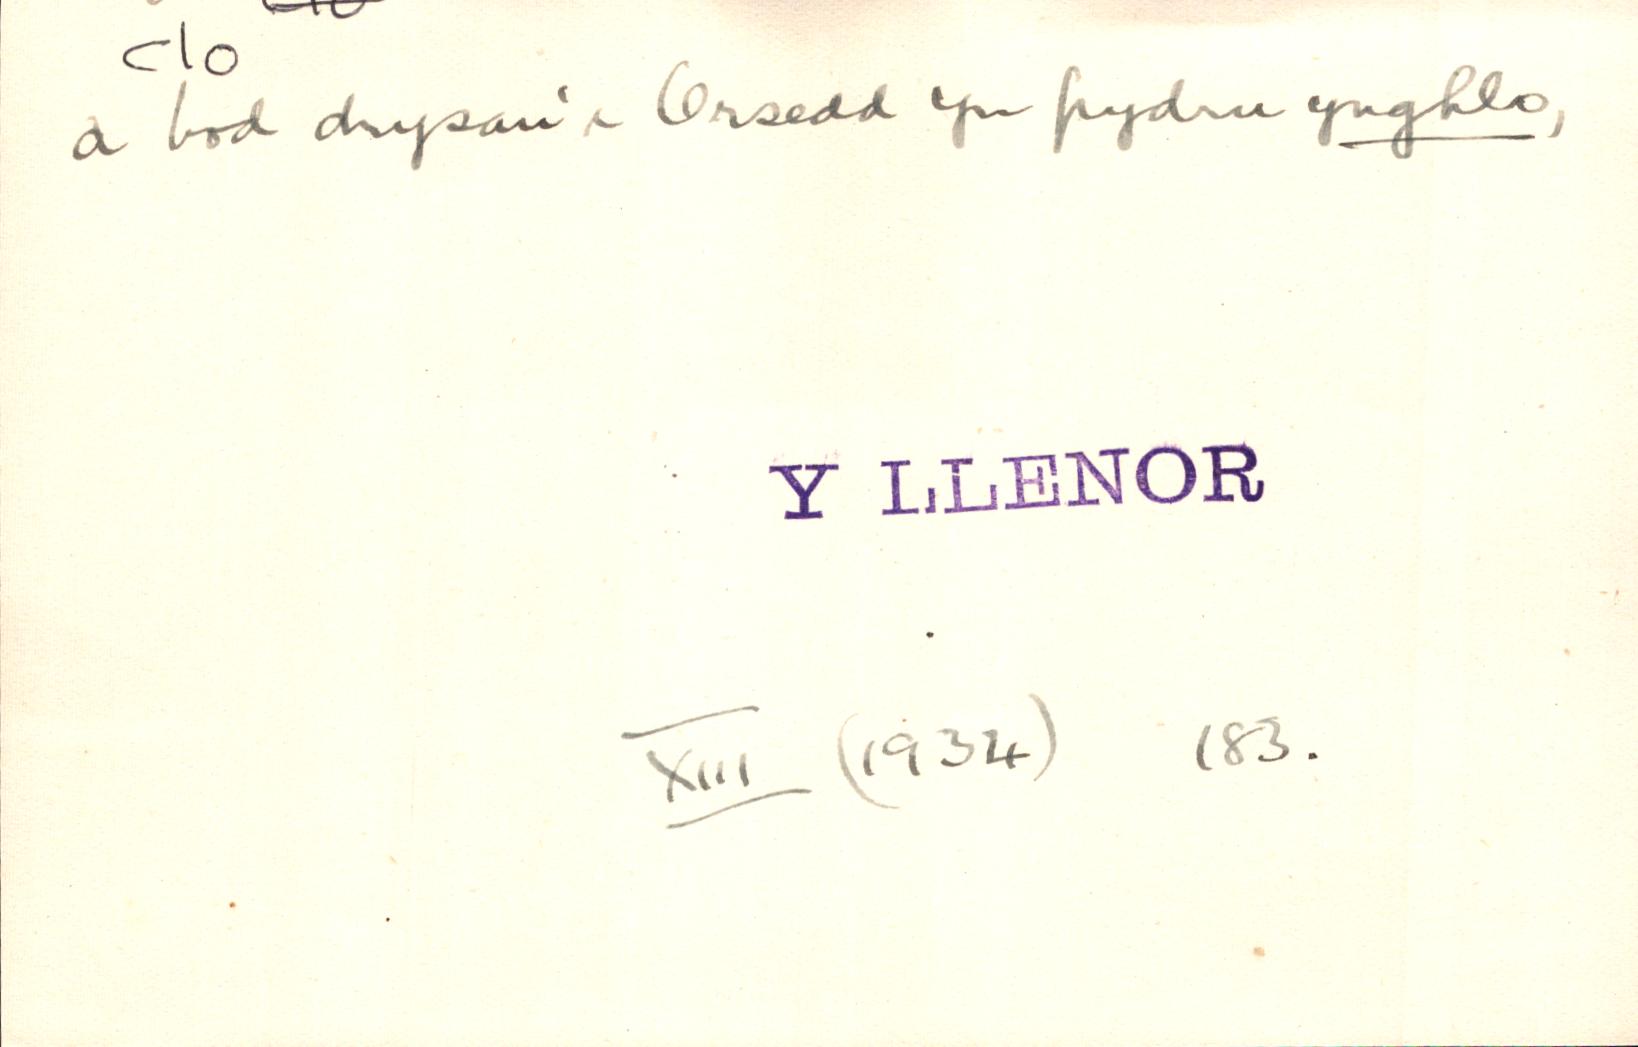 clo
a bod drysau'r Orsedd yn pydru ynghlo,
Y LLENOR
XIII (1934) 183.